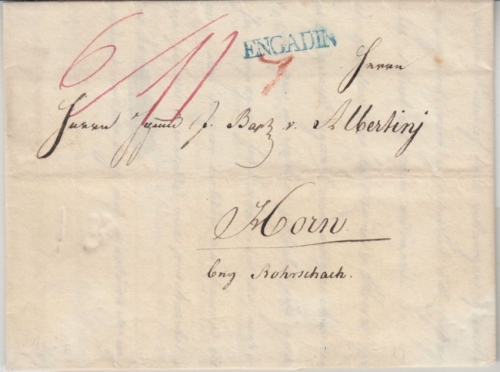 6/11
ENGADIN
7
Herrn
Herrn J. Bapt v. Albertinj
Horn
bey Rohrschach.